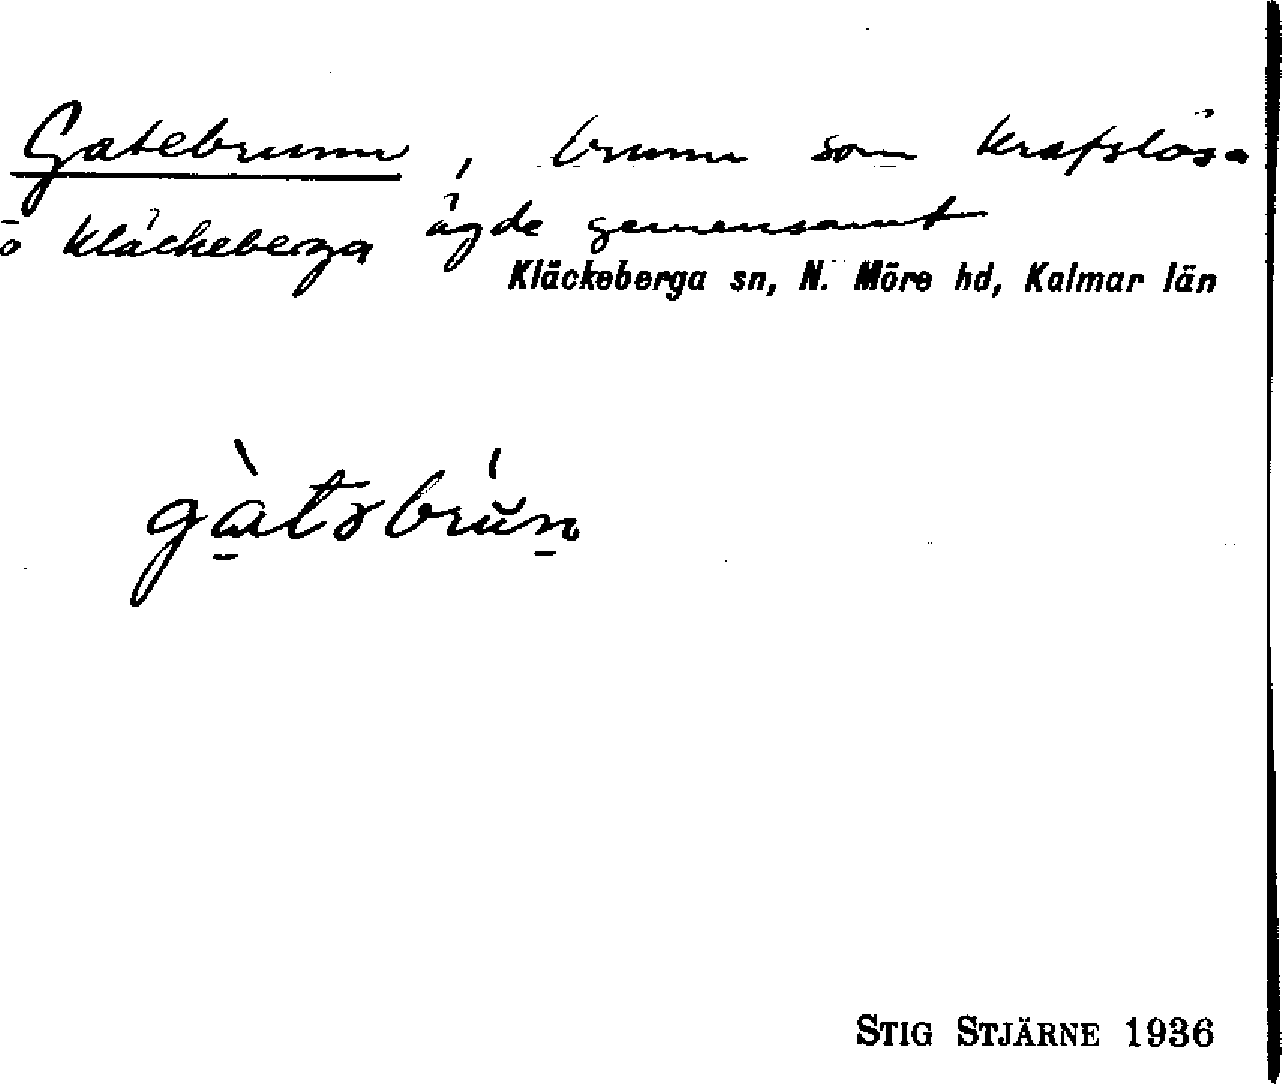 Gatebrunn, brunn som Krafslösa
o Kläckeberga ägde gemensamt
Kläckeberga sn, N. Möre hd, Kalmar län
gàtəbrŭn
STIG STJÄRNE 1936